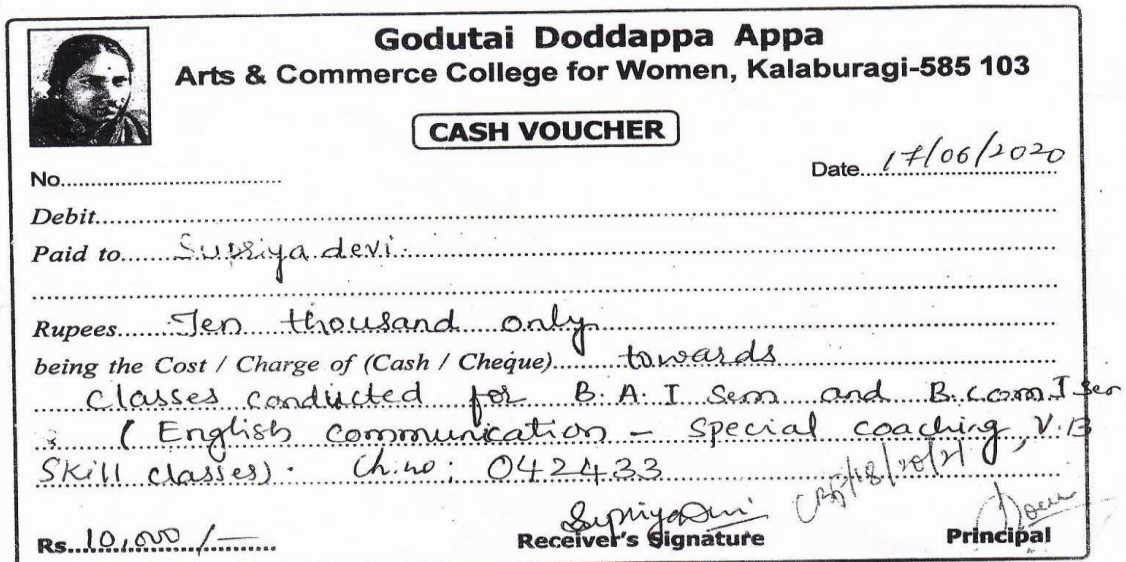 Godutai Doddappa Appa
Arts & Commerce College for Women, Kalaburagi-585 103
CASH VOUCHER
No.............................. Date...17/06/2020
Debit..............................
Paid to......Supriya devi..............................
Rupees......Ten thousand only
being the Cost / Charge of (Cash / Cheque)......towards
Classes conducted for B.A. I Sem and B.com I Sem
( English communication - Special coaching, V.B
Skill classes). Ch.no: 042433
Rs...10,000/- Receiver's Signature Principal